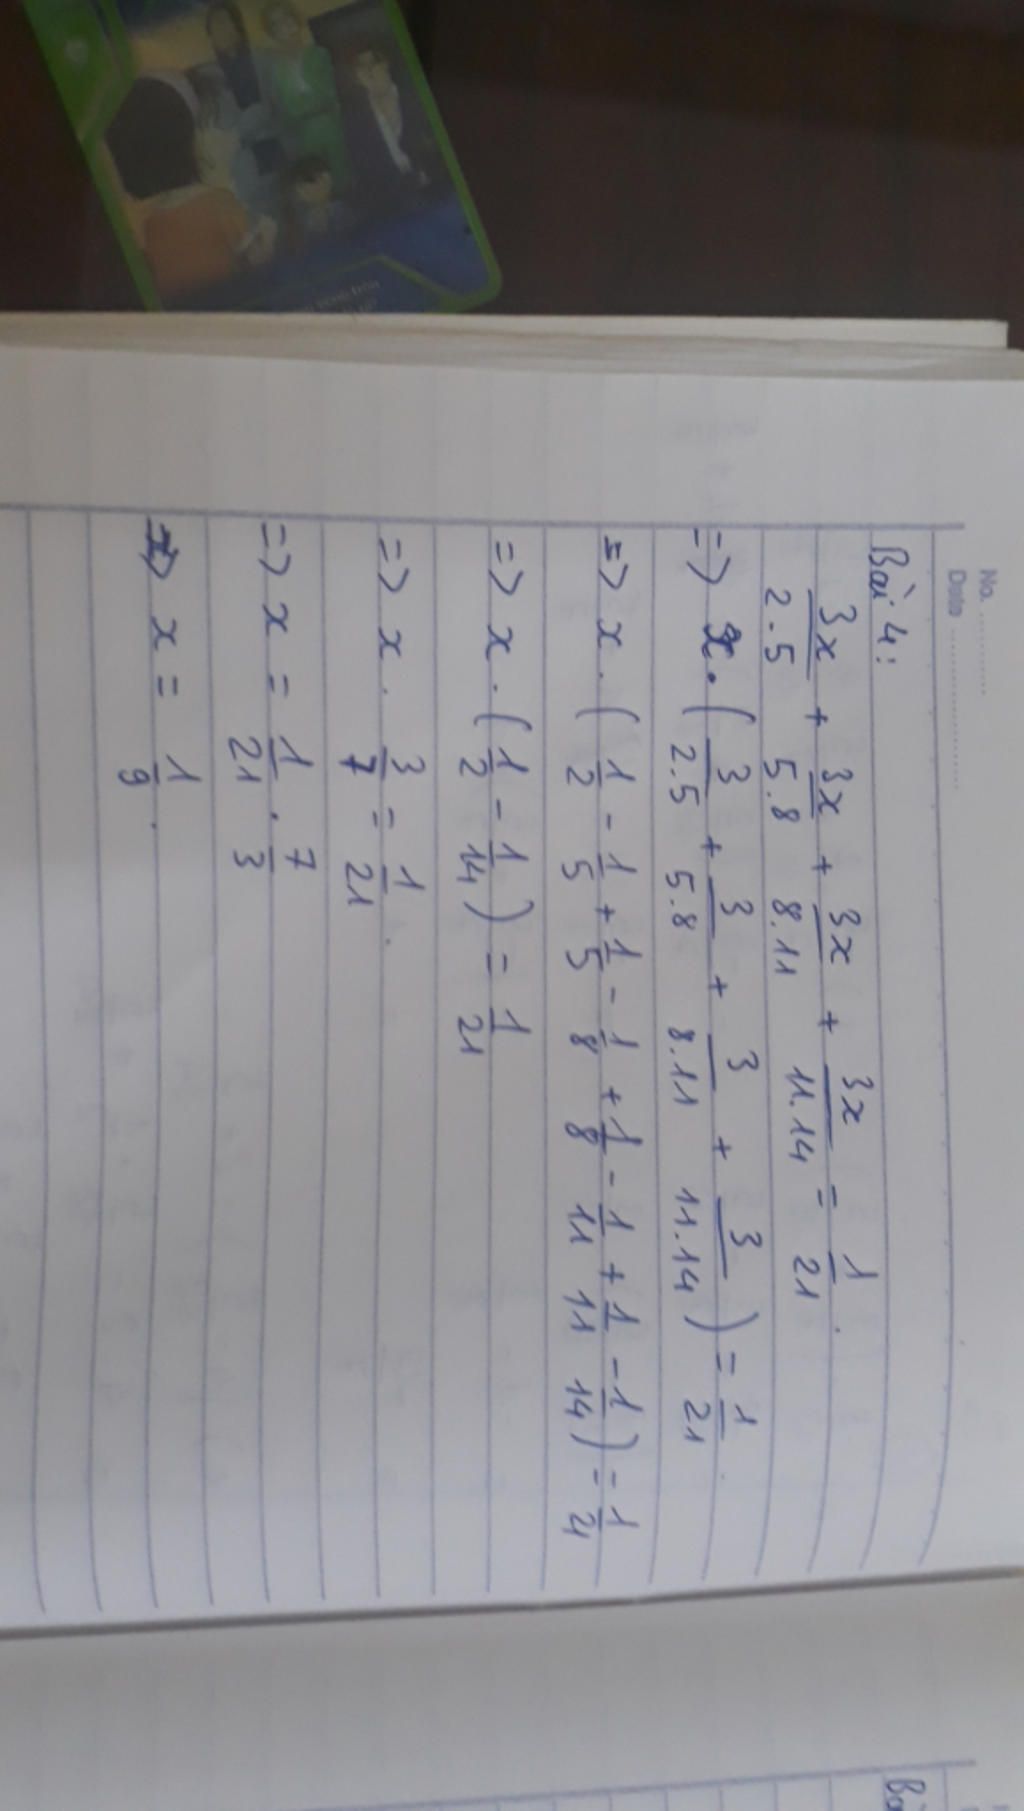 No. ............
Date ........................
Bài 4:
3x/2.5 + 3x/5.8 + 3x/8.11 + 3x/11.14 = 1/21.
=> x.(3/2.5 + 3/5.8 + 3/8.11 + 3/11.14) = 1/21
=> x.(1/2 - 1/5 + 1/5 - 1/8 + 1/8 - 1/11 + 1/11 - 1/14) = 1/21
=> x.(1/2 - 1/14) = 1/21
=> x. 3/7 = 1/21.
=> x = 1/21 . 7/3
=> x = 1/9.